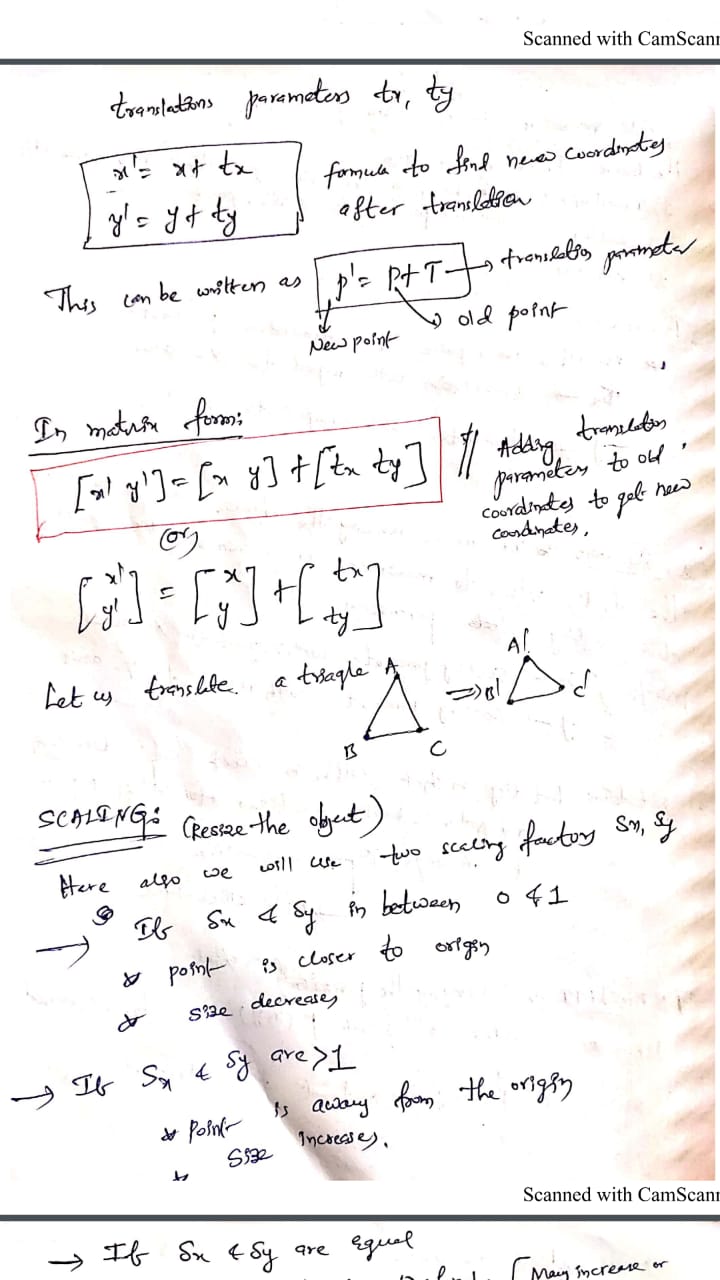 Scanned with CamScann
translations parameters tx, ty
x' = x + tx
y' = y + ty
formula to find new coordinates
after translation
This can be written as p' = P + T → translation parameter
old point
New point
In matrix form:
[x' y'] = [x y] + [tx ty]
// Adding translation
parameters to old
coordinates to get new
coordinates.
(or)
[x' y'] = [x y] + [tx ty]
Let us translate a triagle A B C => A' B' C'
SCALING: (Resize the object)
Here also we will use two scaling factors Sx, Sy
→ If Sx & Sy in between 0 & 1
* point is closer to origin
* size decreases
→ If Sx & Sy are >1
* Point is away from the origin
* Size Increases.
Scanned with CamScann
→ If Sx & Sy are Equal
[May increase or